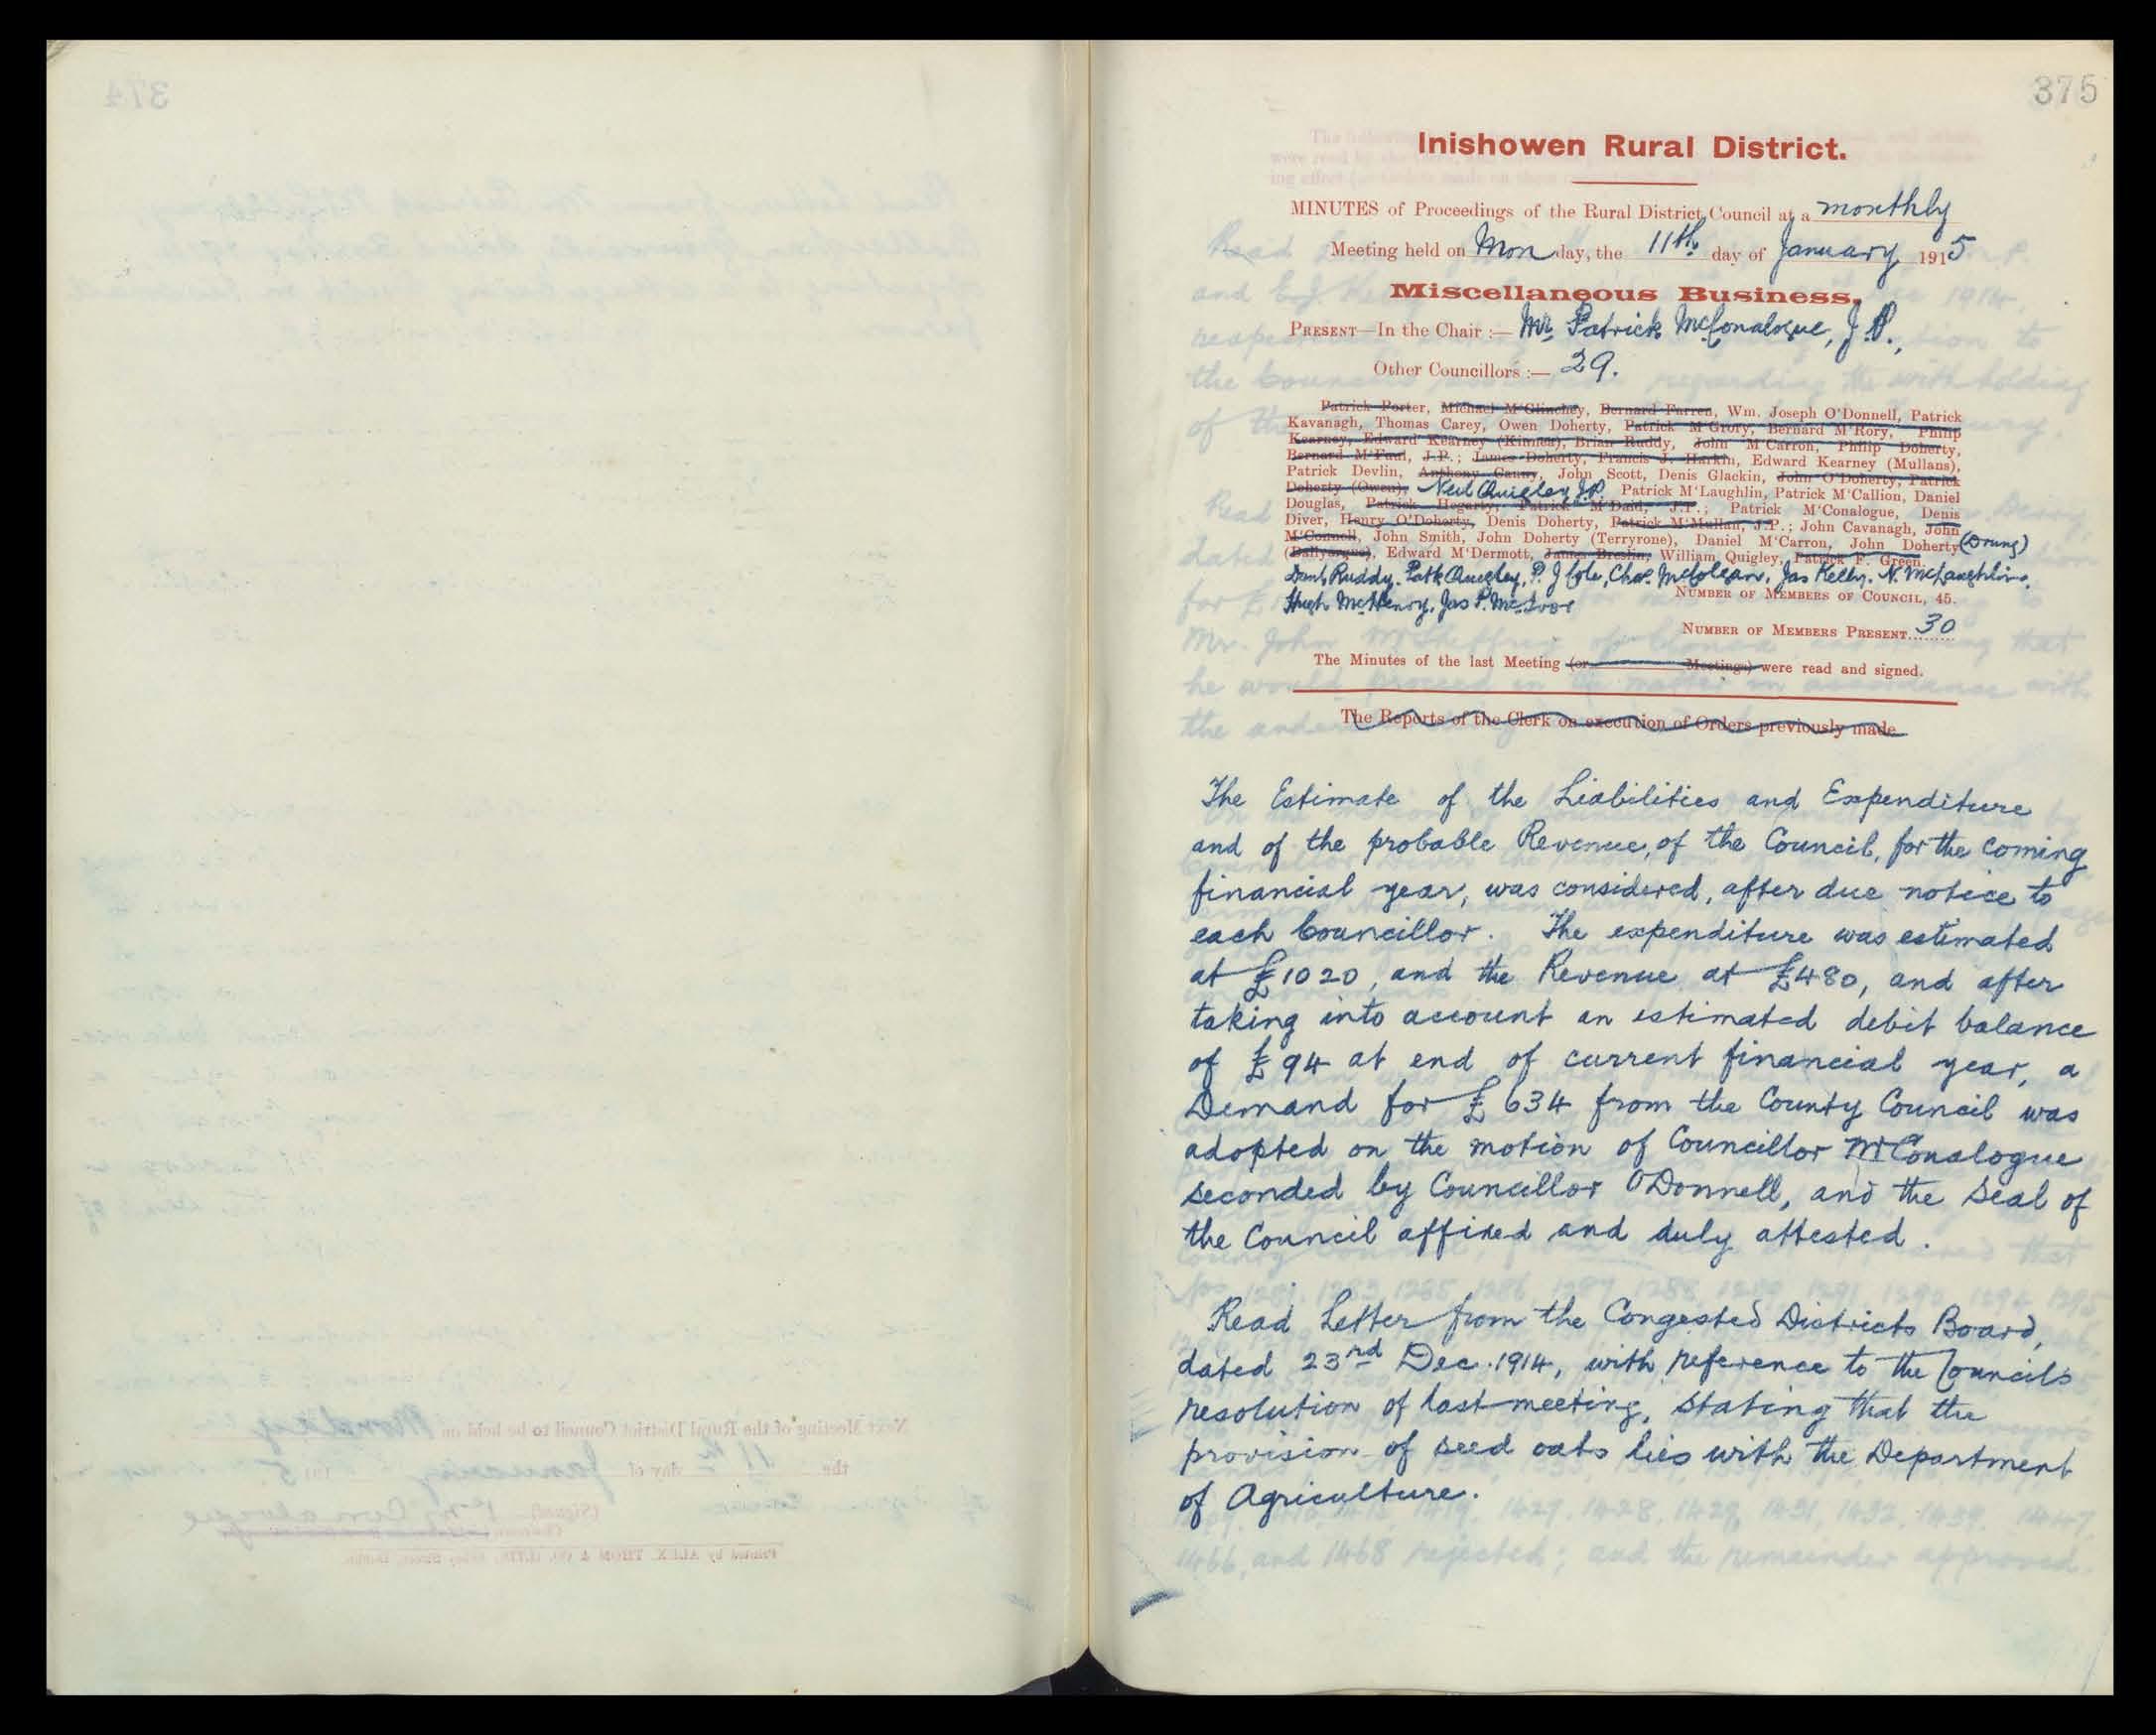 375
Inishowen Rural District.
MINUTES of Proceedings of the Rural District Council at a monthly
Meeting held on Monday, the 11th. day of January 1915
Miscellaneous Business.
PRESENT—In the Chair :— Mr Patrick McConalogue, J.P.,
Other Councillors :— 29.
Patrick Porter, Michael M'Glinchey, Bernard Farren, Wm. Joseph O'Donnell, Patrick
Kavanagh, Thomas Carey, Owen Doherty, Patrick M'Grory, Bernard M'Rory, Philip
Kearney, Edward Kearney (Kinnea), Brian Ruddy, John M'Carron, Philip Doherty,
Bernard M'Faul, J.P.; James Doherty, Francis J. Harkin, Edward Kearney (Mullans),
Patrick Devlin, Anthony Canny, John Scott, Denis Glackin, John O'Doherty, Patrick
Doherty (Owen), Neil Quigley J.P. Patrick M'Laughlin, Patrick M'Callion, Daniel
Douglas, Patrick Hegarty, Patrick M'Daid, J.P.; Patrick M'Conalogue, Denis
Diver, Henry O'Doherty, Denis Doherty, Patrick M'Mullan, J.P.; John Cavanagh, John
M'Connell, John Smith, John Doherty (Terryrone), Daniel M'Carron, John Doherty (Drung)
(Ballyargus), Edward M'Dermott, James Breslin, William Quigley, Patrick F. Green.
Danl. Ruddy. Patk Quigley, P. J Cole, Chas. McColgan, Jas Kelly. N. McLaughlin.
Hugh McHenry, Jas P. McIvor
NUMBER OF MEMBERS OF COUNCIL, 45.
NUMBER OF MEMBERS PRESENT 30
The Minutes of the last Meeting (or Meetings) were read and signed.
The Reports of the Clerk on execution of Orders previously made
The Estimate of the Liabilities and Expenditure
and of the probable Revenue, of the Council, for the coming
financial year, was considered, after due notice to
each Councillor. The expenditure was estimated
at £1020, and the Revenue at £480, and after
taking into account an estimated debit balance
of £94 at end of current financial year, a
Demand for £634 from the County Council was
adopted on the motion of Councillor McConalogue
seconded by Councillor O'Donnell, and the seal of
the Council affixed and duly attested.
Read Letter from the Congested Districts Board,
dated 23rd Dec. 1914, with reference to the Councils
resolution of last meeting, stating that the
provision of seed oats lies with the Department
of Agriculture.